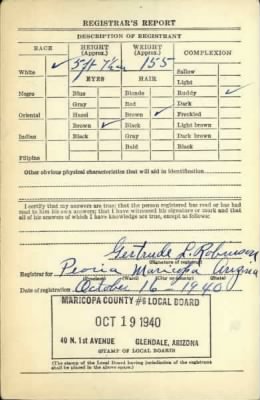 REGISTRAR'S REPORT
DESCRIPTION OF REGISTRANT
RACE HEIGHT (Approx.) WEIGHT (Approx.) COMPLEXION
White ✓ 5 ft 7 1/2 in 155 Sallow
EYES HAIR Light
Negro Blue Blonde Ruddy ✓
Gray Red Dark
Oriental Hazel Brown ✓ Freckled
Brown ✓ Black Light brown
Indian Black Gray Dark brown
Bald Black
Filipino
Other obvious physical characteristics that will aid in identification
I certify that my answers are true; that the person registered has read or has had read to him his own answers; that I have witnessed his signature or mark and that all of his answers of which I have knowledge are true, except as follows:
Gertrude L. Robinson
(Signature of registrar)
Registrar for Peoria Maricopa Arizona
Date of registration October 16 - 1940
MARICOPA COUNTY #6 LOCAL BOARD
OCT 19 1940
40 N. 1st AVENUE GLENDALE, ARIZONA
(STAMP OF LOCAL BOARD)
(The stamp of the Local Board having jurisdiction of the registrant shall be placed in the above space.)